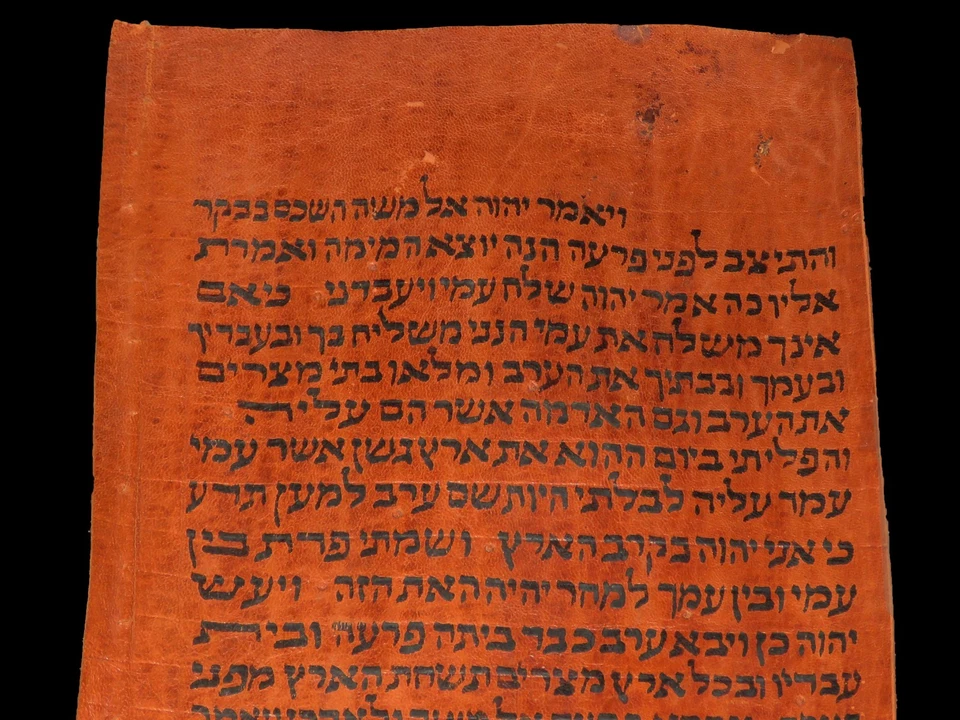 ויאמר יהוה אל משה השכם בבקר
והתיצב לפני פרעה הנה יוצא המימה ואמרת
אליו כה אמר יהוה שלח עמי ויעבדני כי אם
אינך משלח את עמי הנני משליח בך ובעבדיך
ובעמך ובבתיך את הערב ומלאו בתי מצרים
את הערב וגם האדמה אשר הם עליה
והפליתי ביום ההוא את ארץ גשן אשר עמי
עמד עליה לבלתי היות שם ערב למען תדע
כי אני יהוה בקרב הארץ ושמתי פדת בין
עמי ובין עמך למחר יהיה האת הזה ויעש
יהוה כן ויבא ערב כבד ביתה פרעה ובית
עבדיו ובכל ארץ מצרים תשחת הארץ מפני